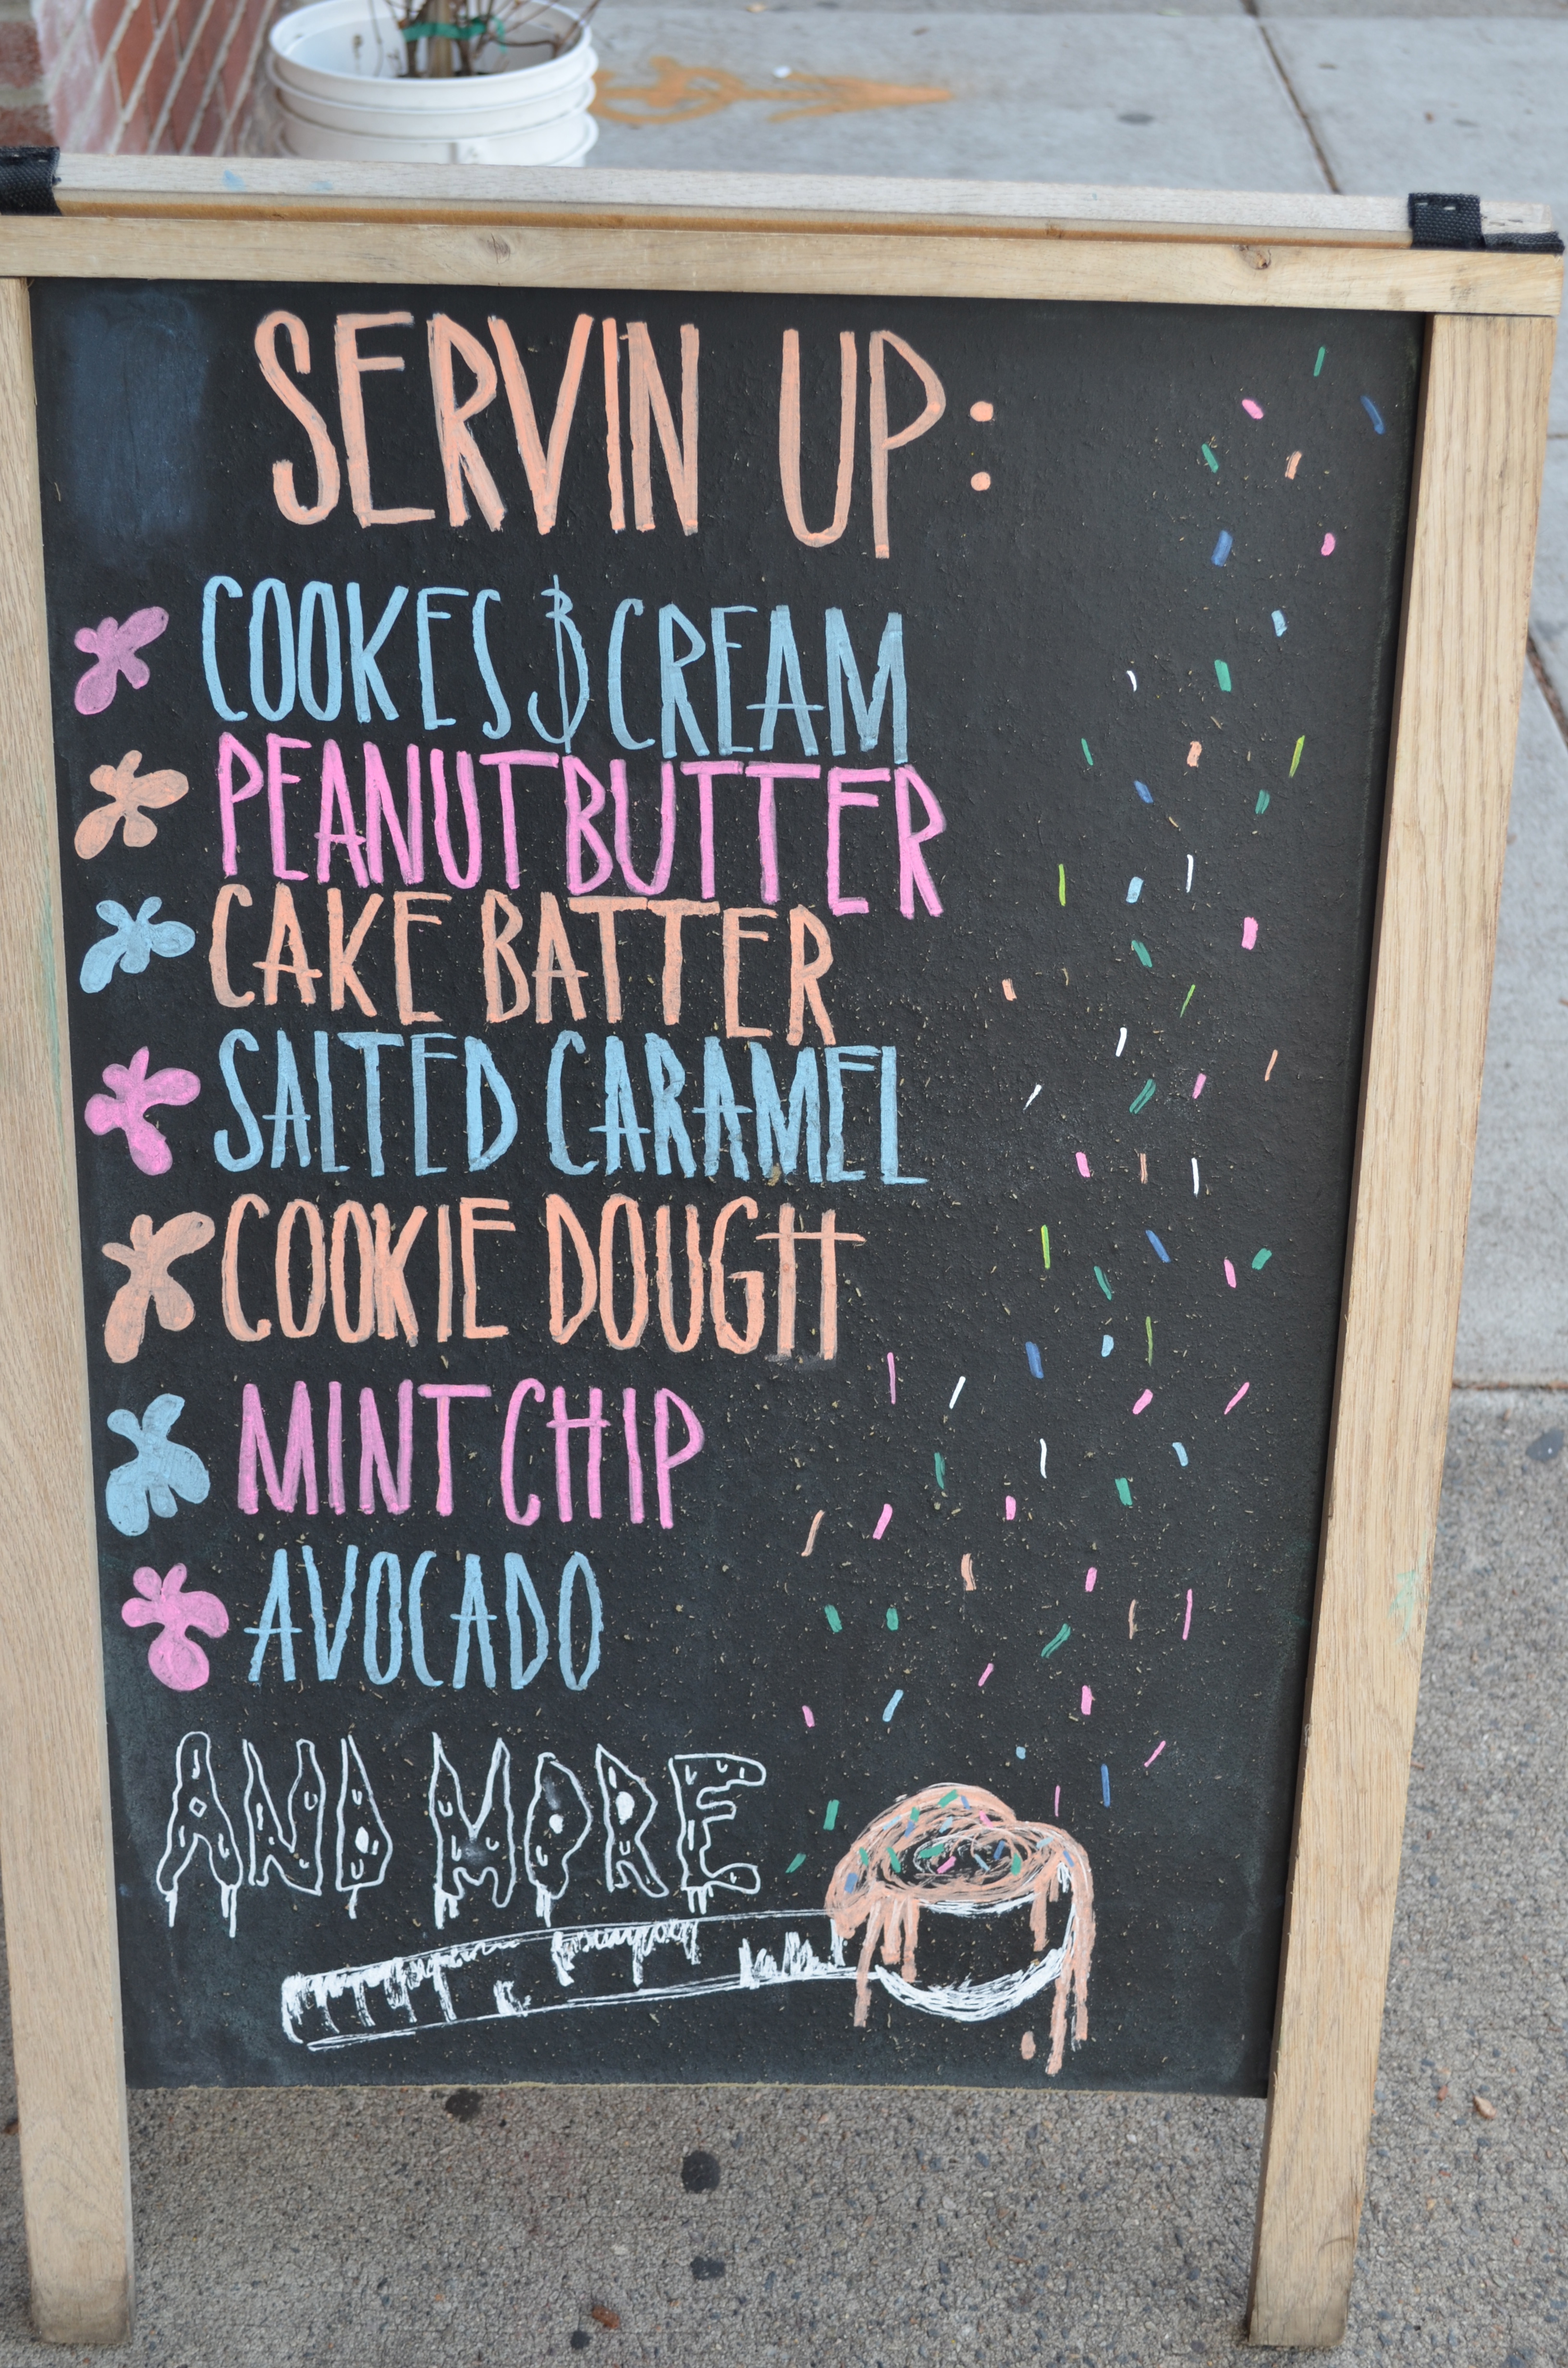 SERVIN UP:
COOKES & CREAM
PEANUT BUTTER
CAKE BATTER
SALTED CARAMEL
COOKIE DOUGH
MINT CHIP
AVOCADO
AND MORE